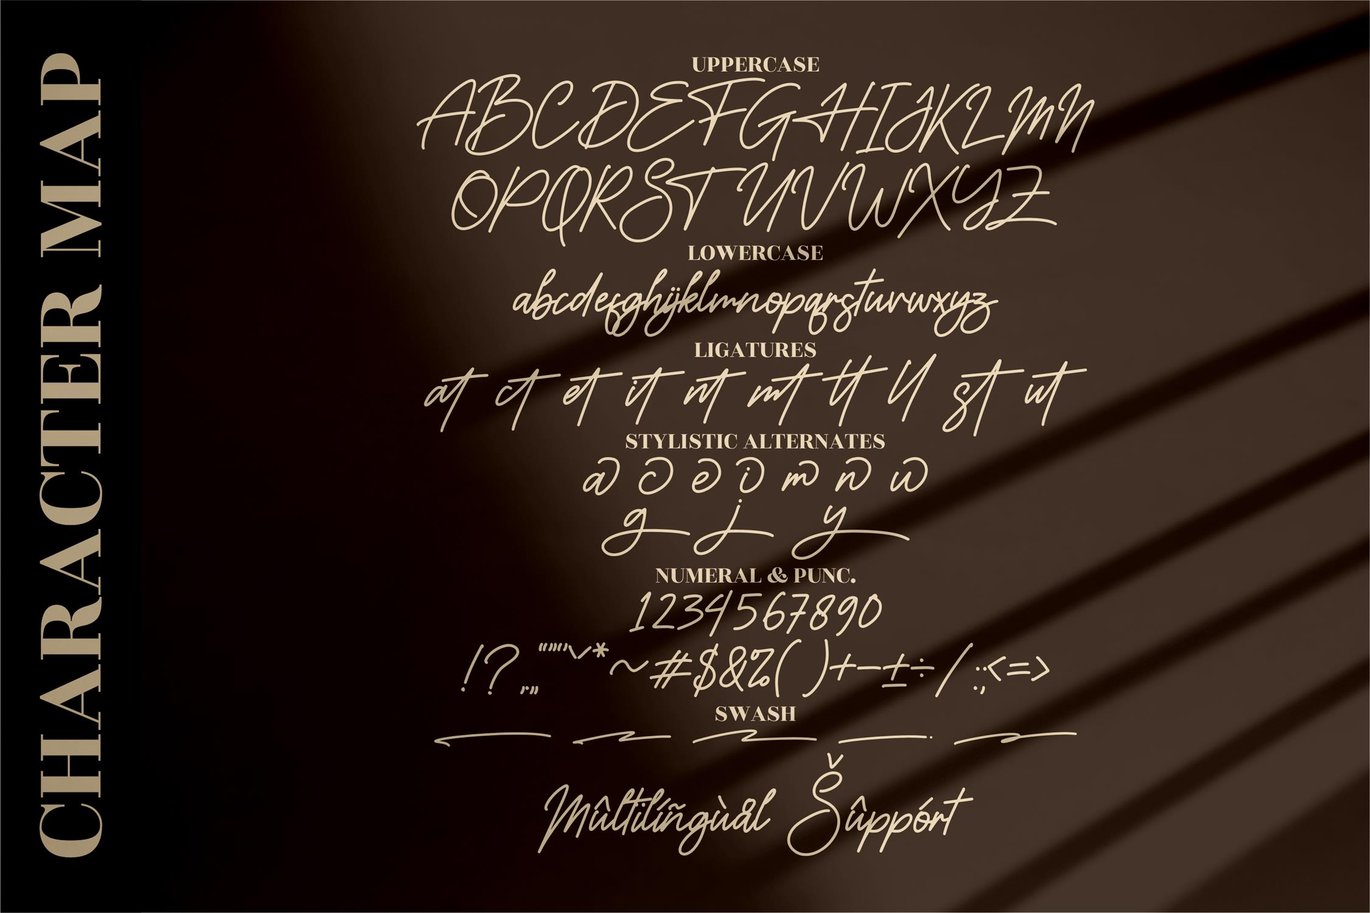 CHARACTER MAP
UPPERCASE
ABCDEFGHIJKLMN
OPQRSTUVWXYZ
LOWERCASE
abcdefghijklmnopqrstuvwxyz
LIGATURES
at ct et it nt mt tt ll st ut
STYLISTIC ALTERNATES
a c e i m n u
g j y
NUMERAL & PUNC.
1234567890
!?.,„"""''*~#$&%()+−±÷/:;<=>
SWASH
Mûltilíñgùål Šûppórt